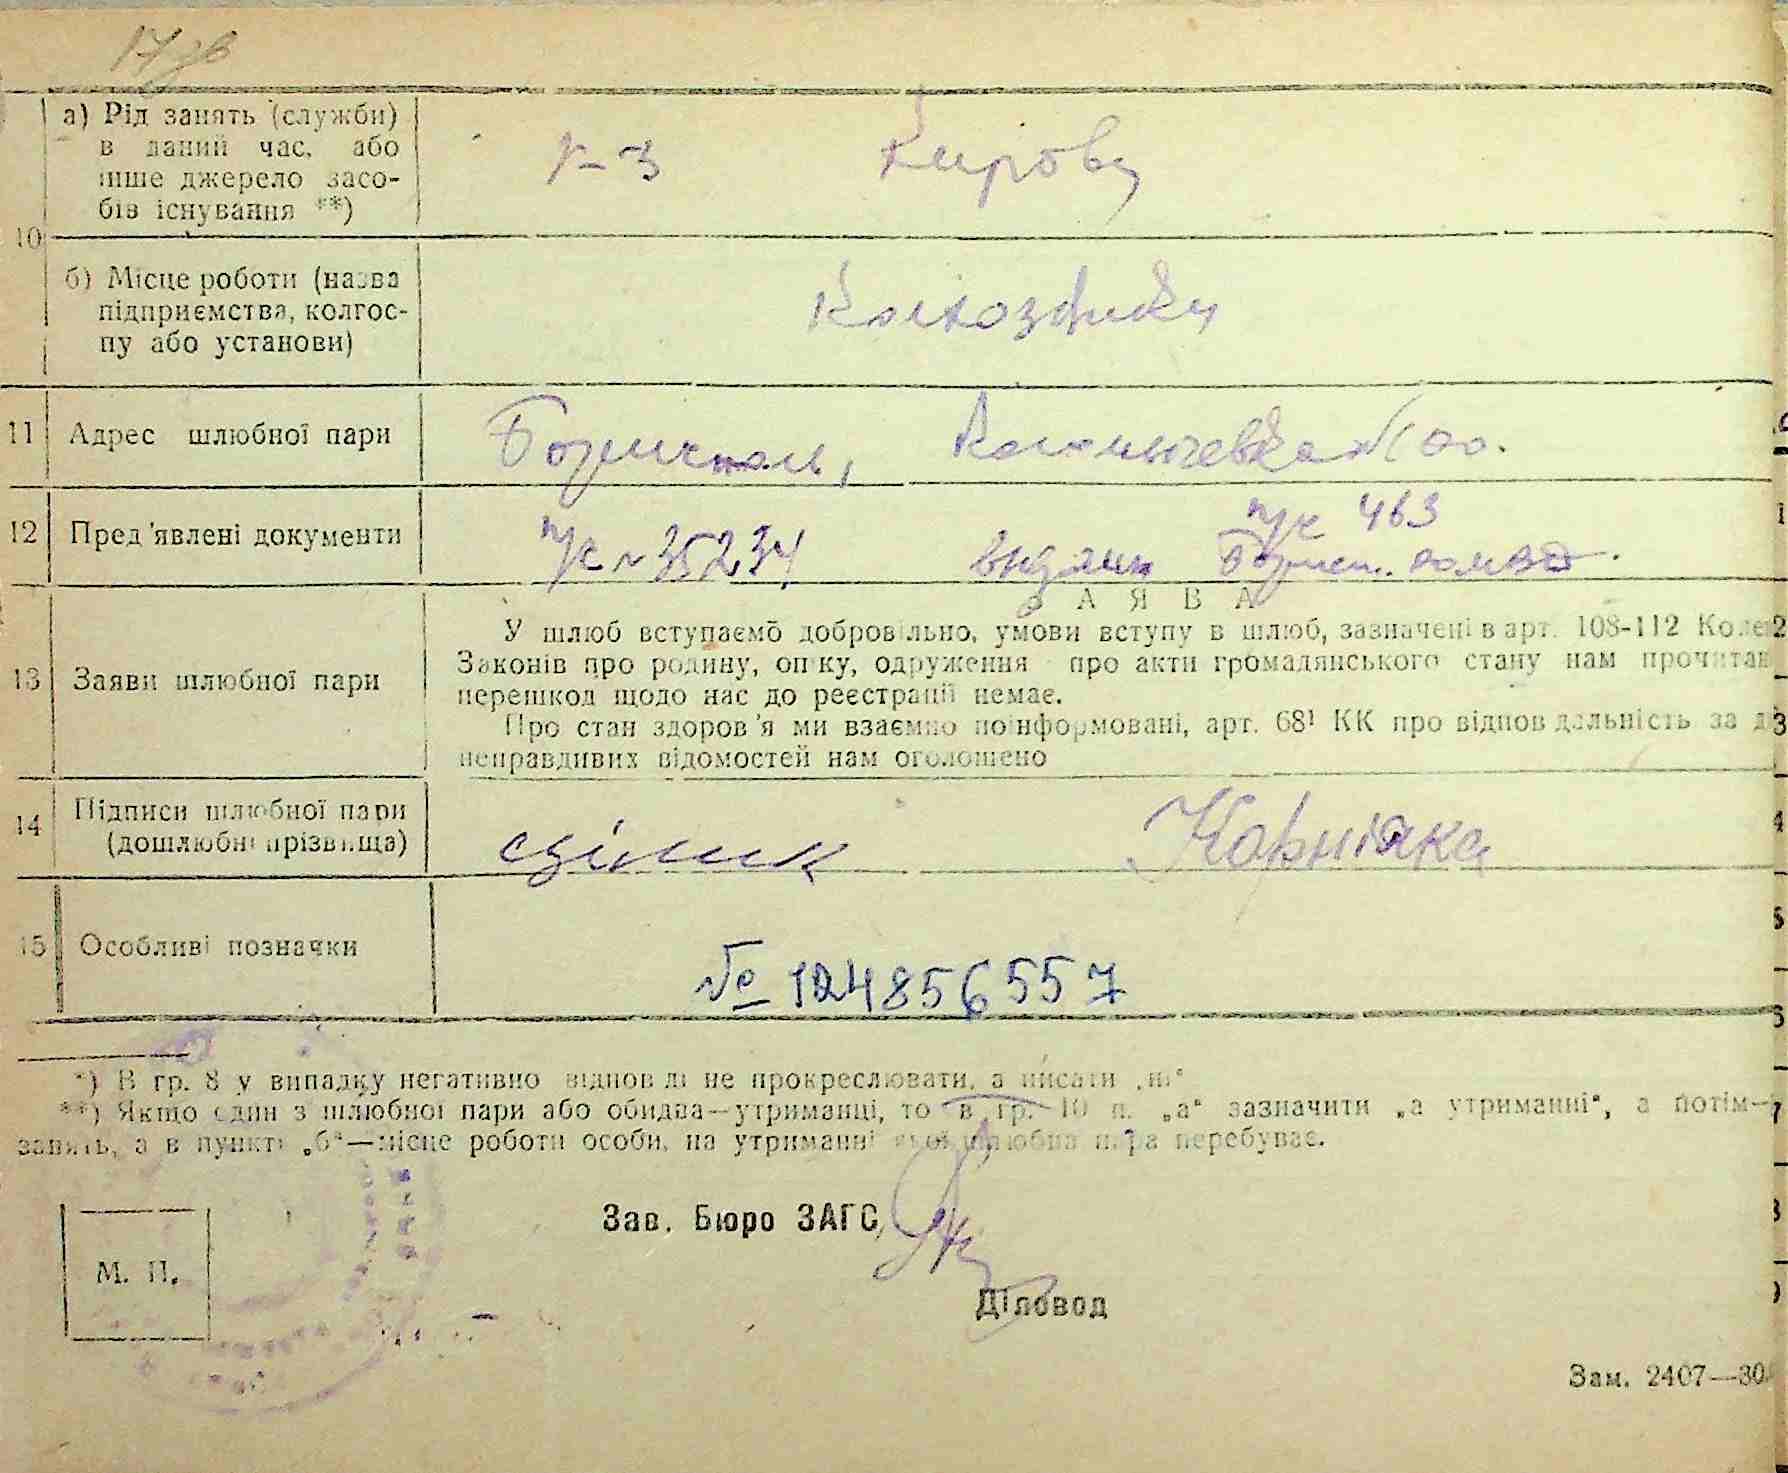 17зв
а) Рід занять (служби)
в даний час, або
інше джерело засо-
бів існування **)
к-з Кирова
10
б) Місце роботи (назва
підприємства, колгос-
пу або установи)
Колхозники
11 Адрес шлюбної пари
Бориспол,
12 Пред'явлені документи
п/к 463
п/к № 35234 видани
13 Заяви шлюбної пари
ЗАЯВА
У шлюб вступаємо добровільно, умови вступу в шлюб, зазначені в арт. 108-112 Коде
Законів про родину, опіку, одруження про акти громадянського стану нам прочитан
перешкод щодо нас до реєстрації немає.
Про стан здоров'я ми взаємно поінформовані, арт. 68¹ КК про відповідальність за д
неправдивих відомостей нам оголошено
14 Підписи шлюбної пари
(дошлюбні прізвища)
Корніяка
15 Особливі позначки
№ 124856557
*) В гр. 8 у випадку негативно відповіді не прокреслювати, а писати „ні“
**) Якщо един з шлюбної пари або обидва—утриманці, то в гр. 10 п. „а“ зазначити „а утриманні“, а потім—
занять, а в пункті „б“—місце роботи особи, на утриманні якої шлюбна пара перебуває.
Зав. Бюро ЗАГС
М. П.
Діловод
Зам. 2407—30